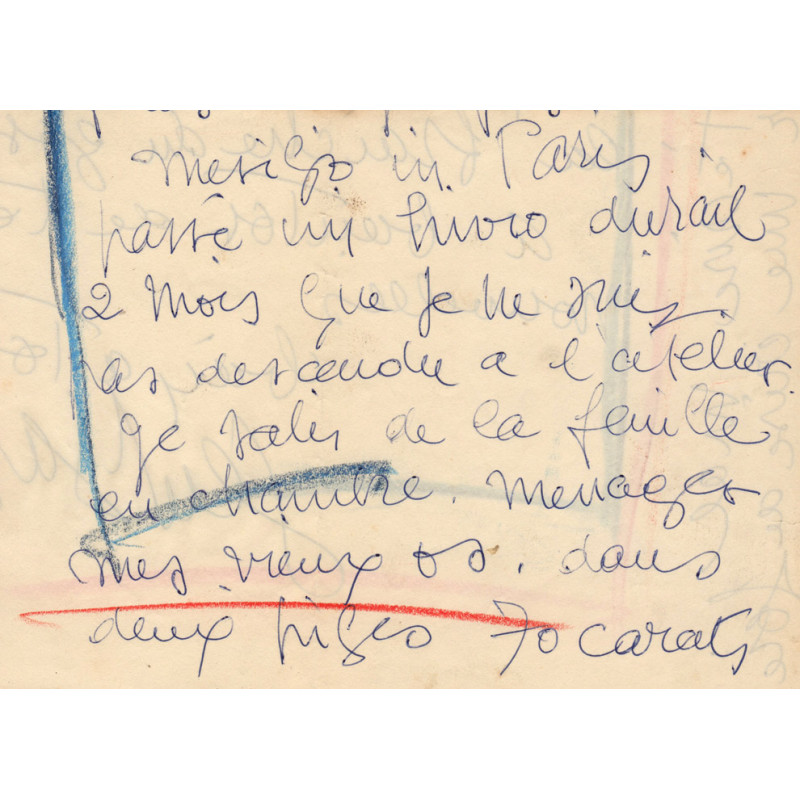 in Paris
passé un hivro durail
2 mois que je ne suis
as descendu a l'atelier.
ge salis de la feuille
en chambre. menager
mes vieux os. dans
deux piges 70 carats